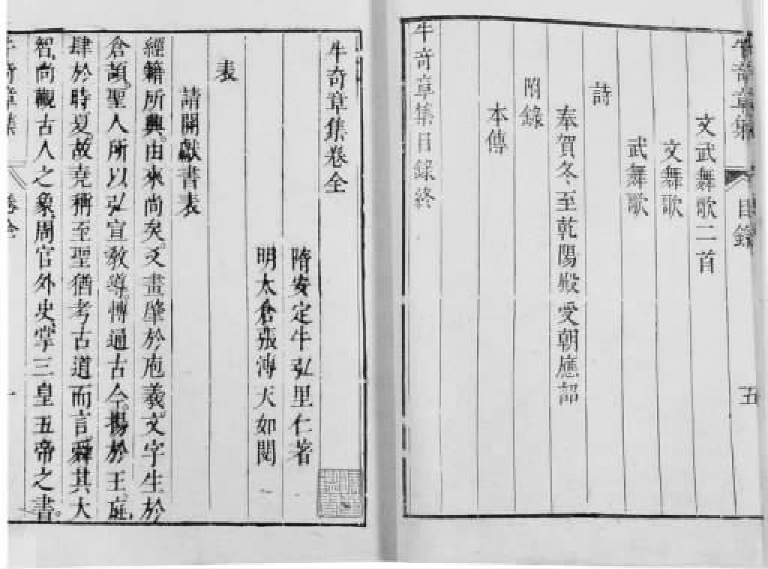 牛奇章集　目錄　五
文武舞歌二首
文舞歌
武舞歌
詩
奉賀冬至乾陽殿受朝應詔
附錄
本傳
牛奇章集目錄終
牛奇章集卷全
隋安定牛弘里仁著
明太倉張溥天如閱
表
請開獻書表
經籍所興。由來尚矣。爻畫肇於庖羲。文字生於
倉頡。聖人所以弘宣教導。博通古今。揚於王庭。
肆於時夏。故堯稱至聖。猶考古道而言。舜其大
智。尚觀古人之象。周官外史。掌三皇五帝之書。
牛奇章集　卷全　一